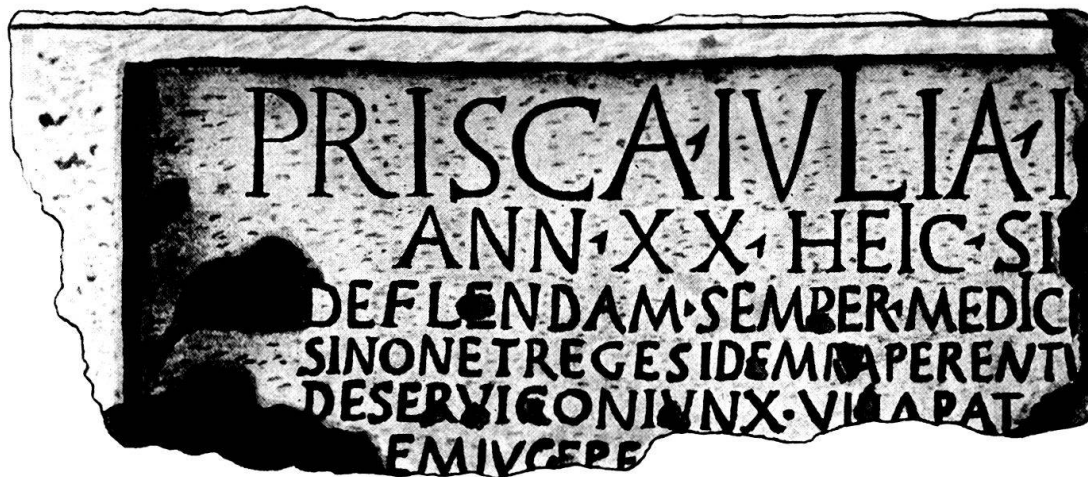 PRISCA·IVLIA·I
ANN·XX·HEIC·SI
DEFLENDAM·SEMPER·MEDIC
SINONETREGESIDEMRAPERENTV
DESERVICONIVNX·